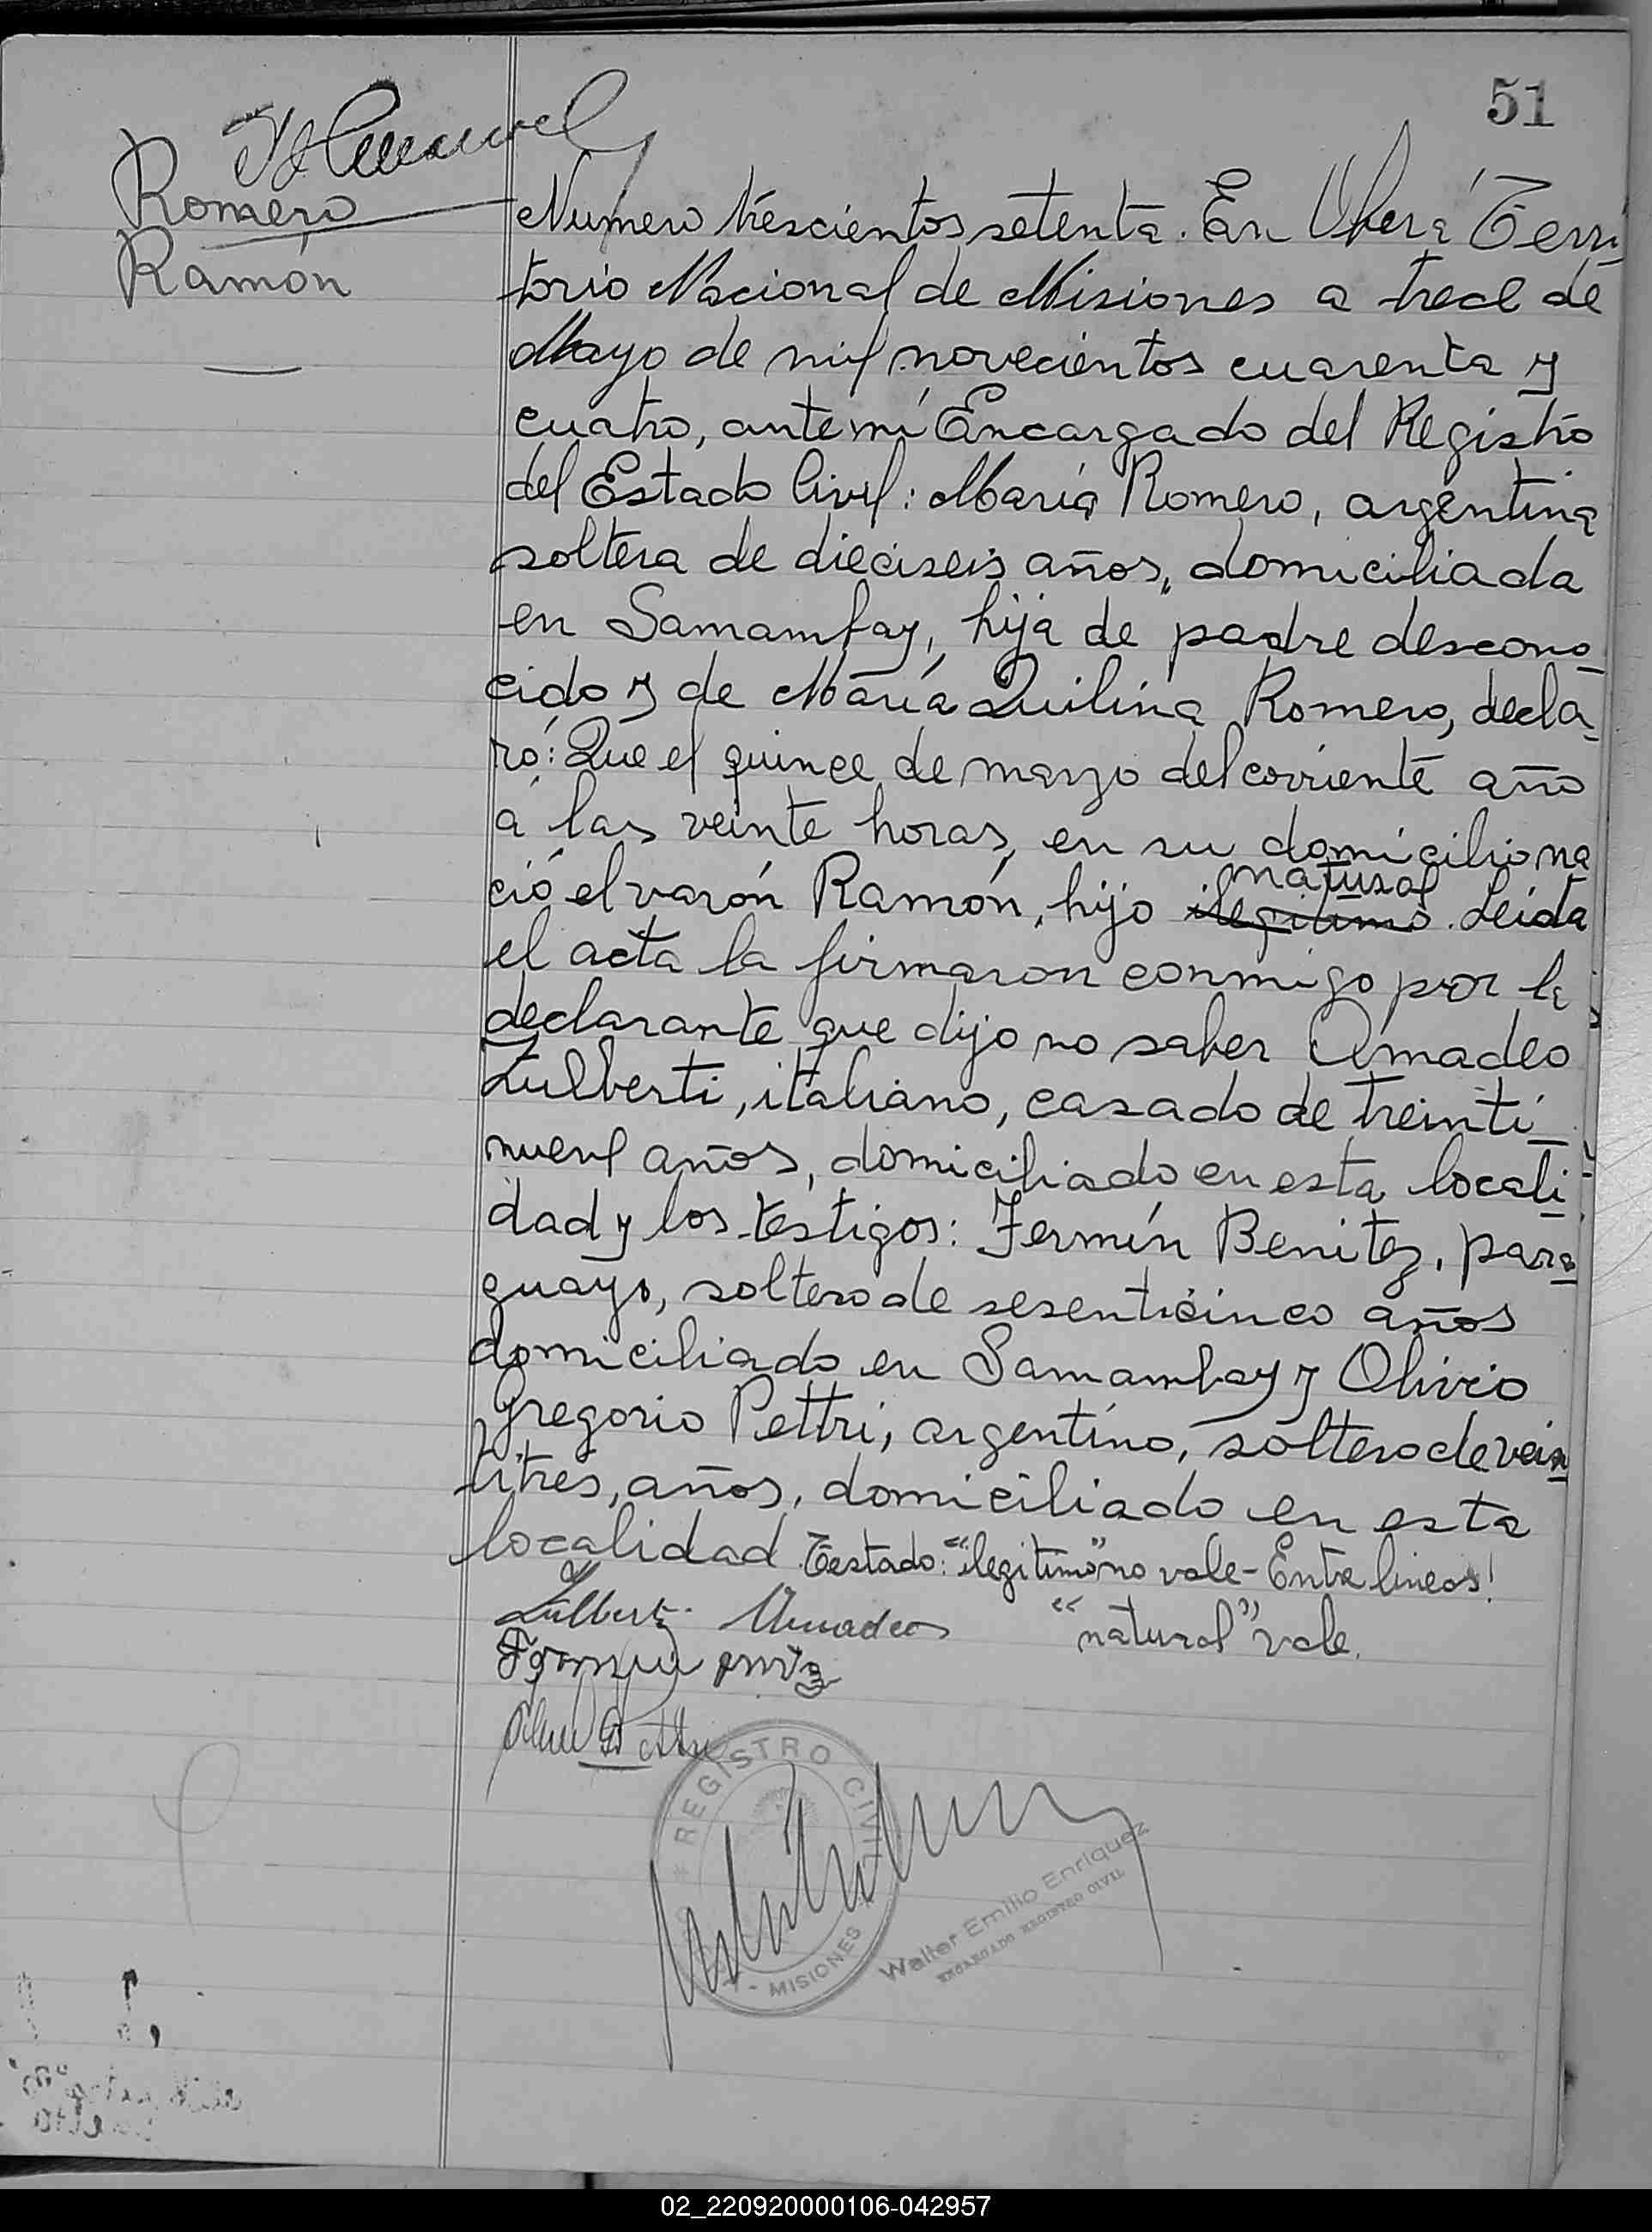 51
Romero
Ramón
Numero trescientos setenta. En Oberá Terri
torio Nacional de Misiones a trece de
Mayo de mil novecientos cuarenta y
cuatro, ante mí Encargado del Registro
del Estado Civil: María Romero, argentina
soltera de dieciseis años, domiciliada
en Samambay, hija de padre descono-
cido y de María Quilina Romero, decla-
ró: Que el quince de marzo del corriente año
a las veinte horas, en su domicilio na
natural
ció el varón Ramón, hijo ilegitimo. Leida
el acta la firmaron conmigo por la
declarante que dijo no saber Amadeo
Lulberti, italiano, casado de treinti-
nueve años, domiciliado en esta locali-
dad y los testigos: Fermín Benitez, para-
guayo, soltero de sesenticinco años
domiciliado en Samambay y Olivio
Gregorio Pettri, argentino, soltero de vein-
titres, años, domiciliado en esta
localidad Testado: "ilegitimo" no vale - Entre lineas!
"natural" vale.
Lulberti Amadeo
REGISTRO CIVIL
- MISIONES
Walter Emilio Enriquez
ENCARGADO REGISTRO CIVIL
02_220920000106-042957